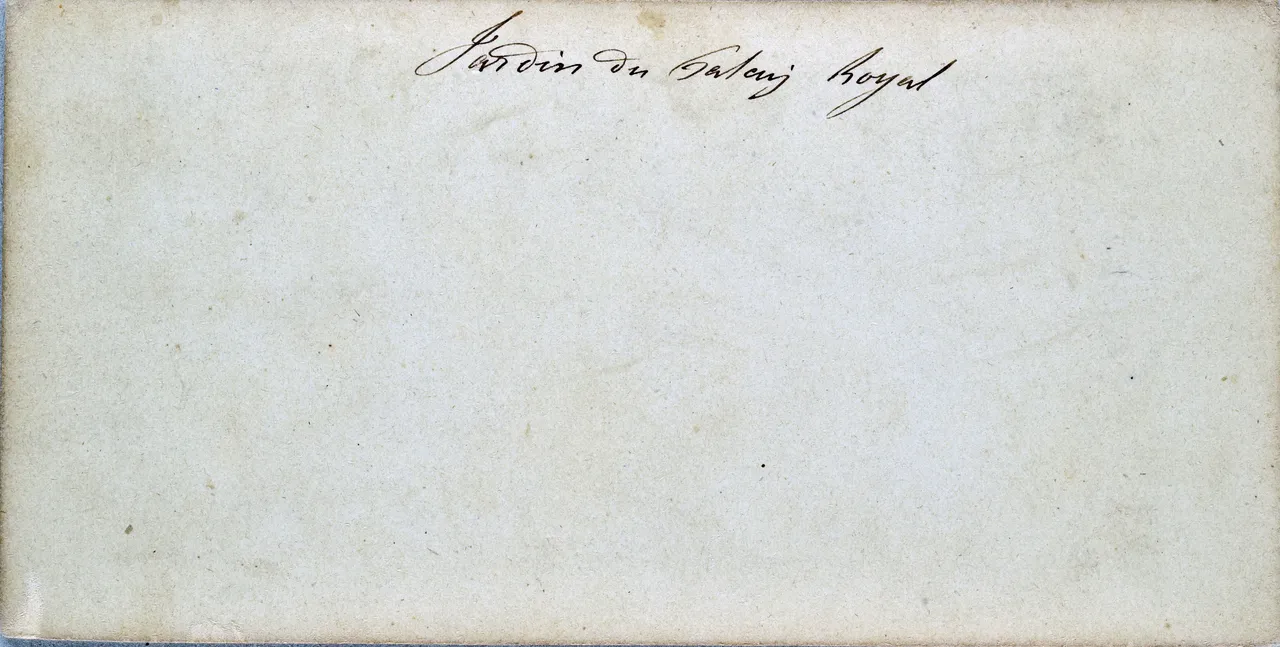 Jardin du Palais Royal